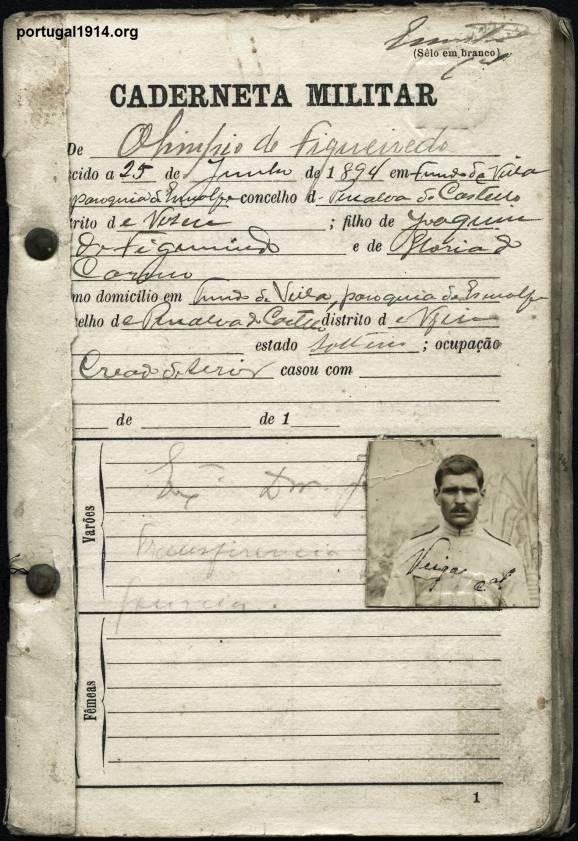 portugal1914.org
(Sêlo em branco)
CADERNETA MILITAR
De Olimpio de Figueiredo
cido a 25 de Junho de 1894 em Fundo de Vila
paroquia de Esmolfe concelho d Penalva do Castello
trito de Vizeu ; filho de Joaquim
de Figueiredo e de Gloria d
mo domicílio em Fundo de Vila, paroquia de Esmolfe
celho de Penalva do Castello distrito de Vizeu
estado solteiro ; ocupação
Creado de servir casou com
de de 1
Varões
Transferencia
Veiga
Fêmeas
1